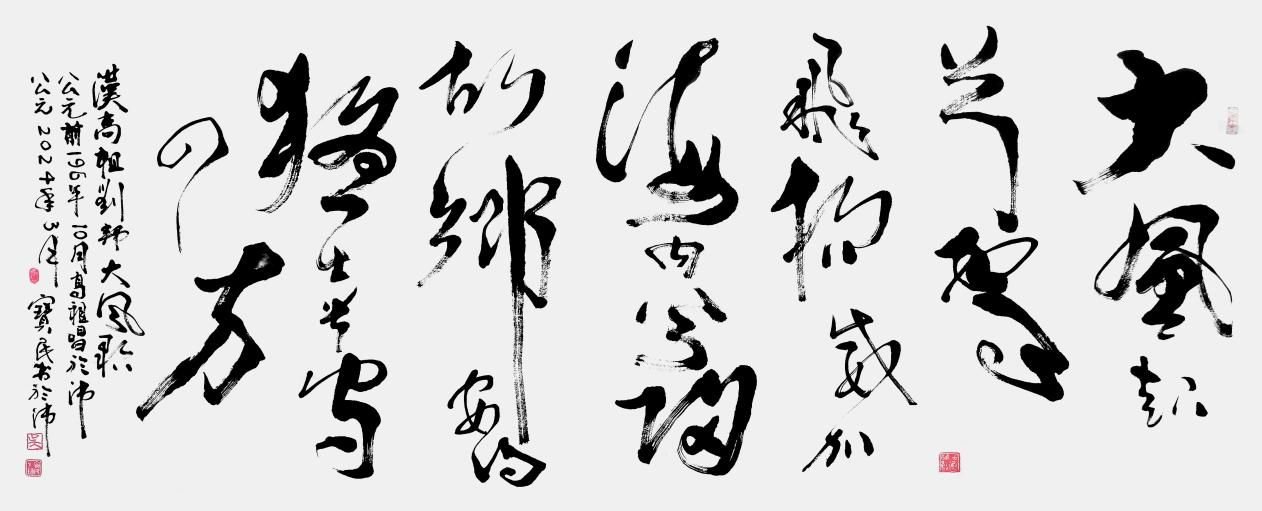 大風起
兮雲
飛揚威加
海內兮歸
故鄉安得
猛士兮守
四方
漢高祖劉邦大風歌
公元前196年10月高祖唱於沛
公元2024年3月寶民书於沛